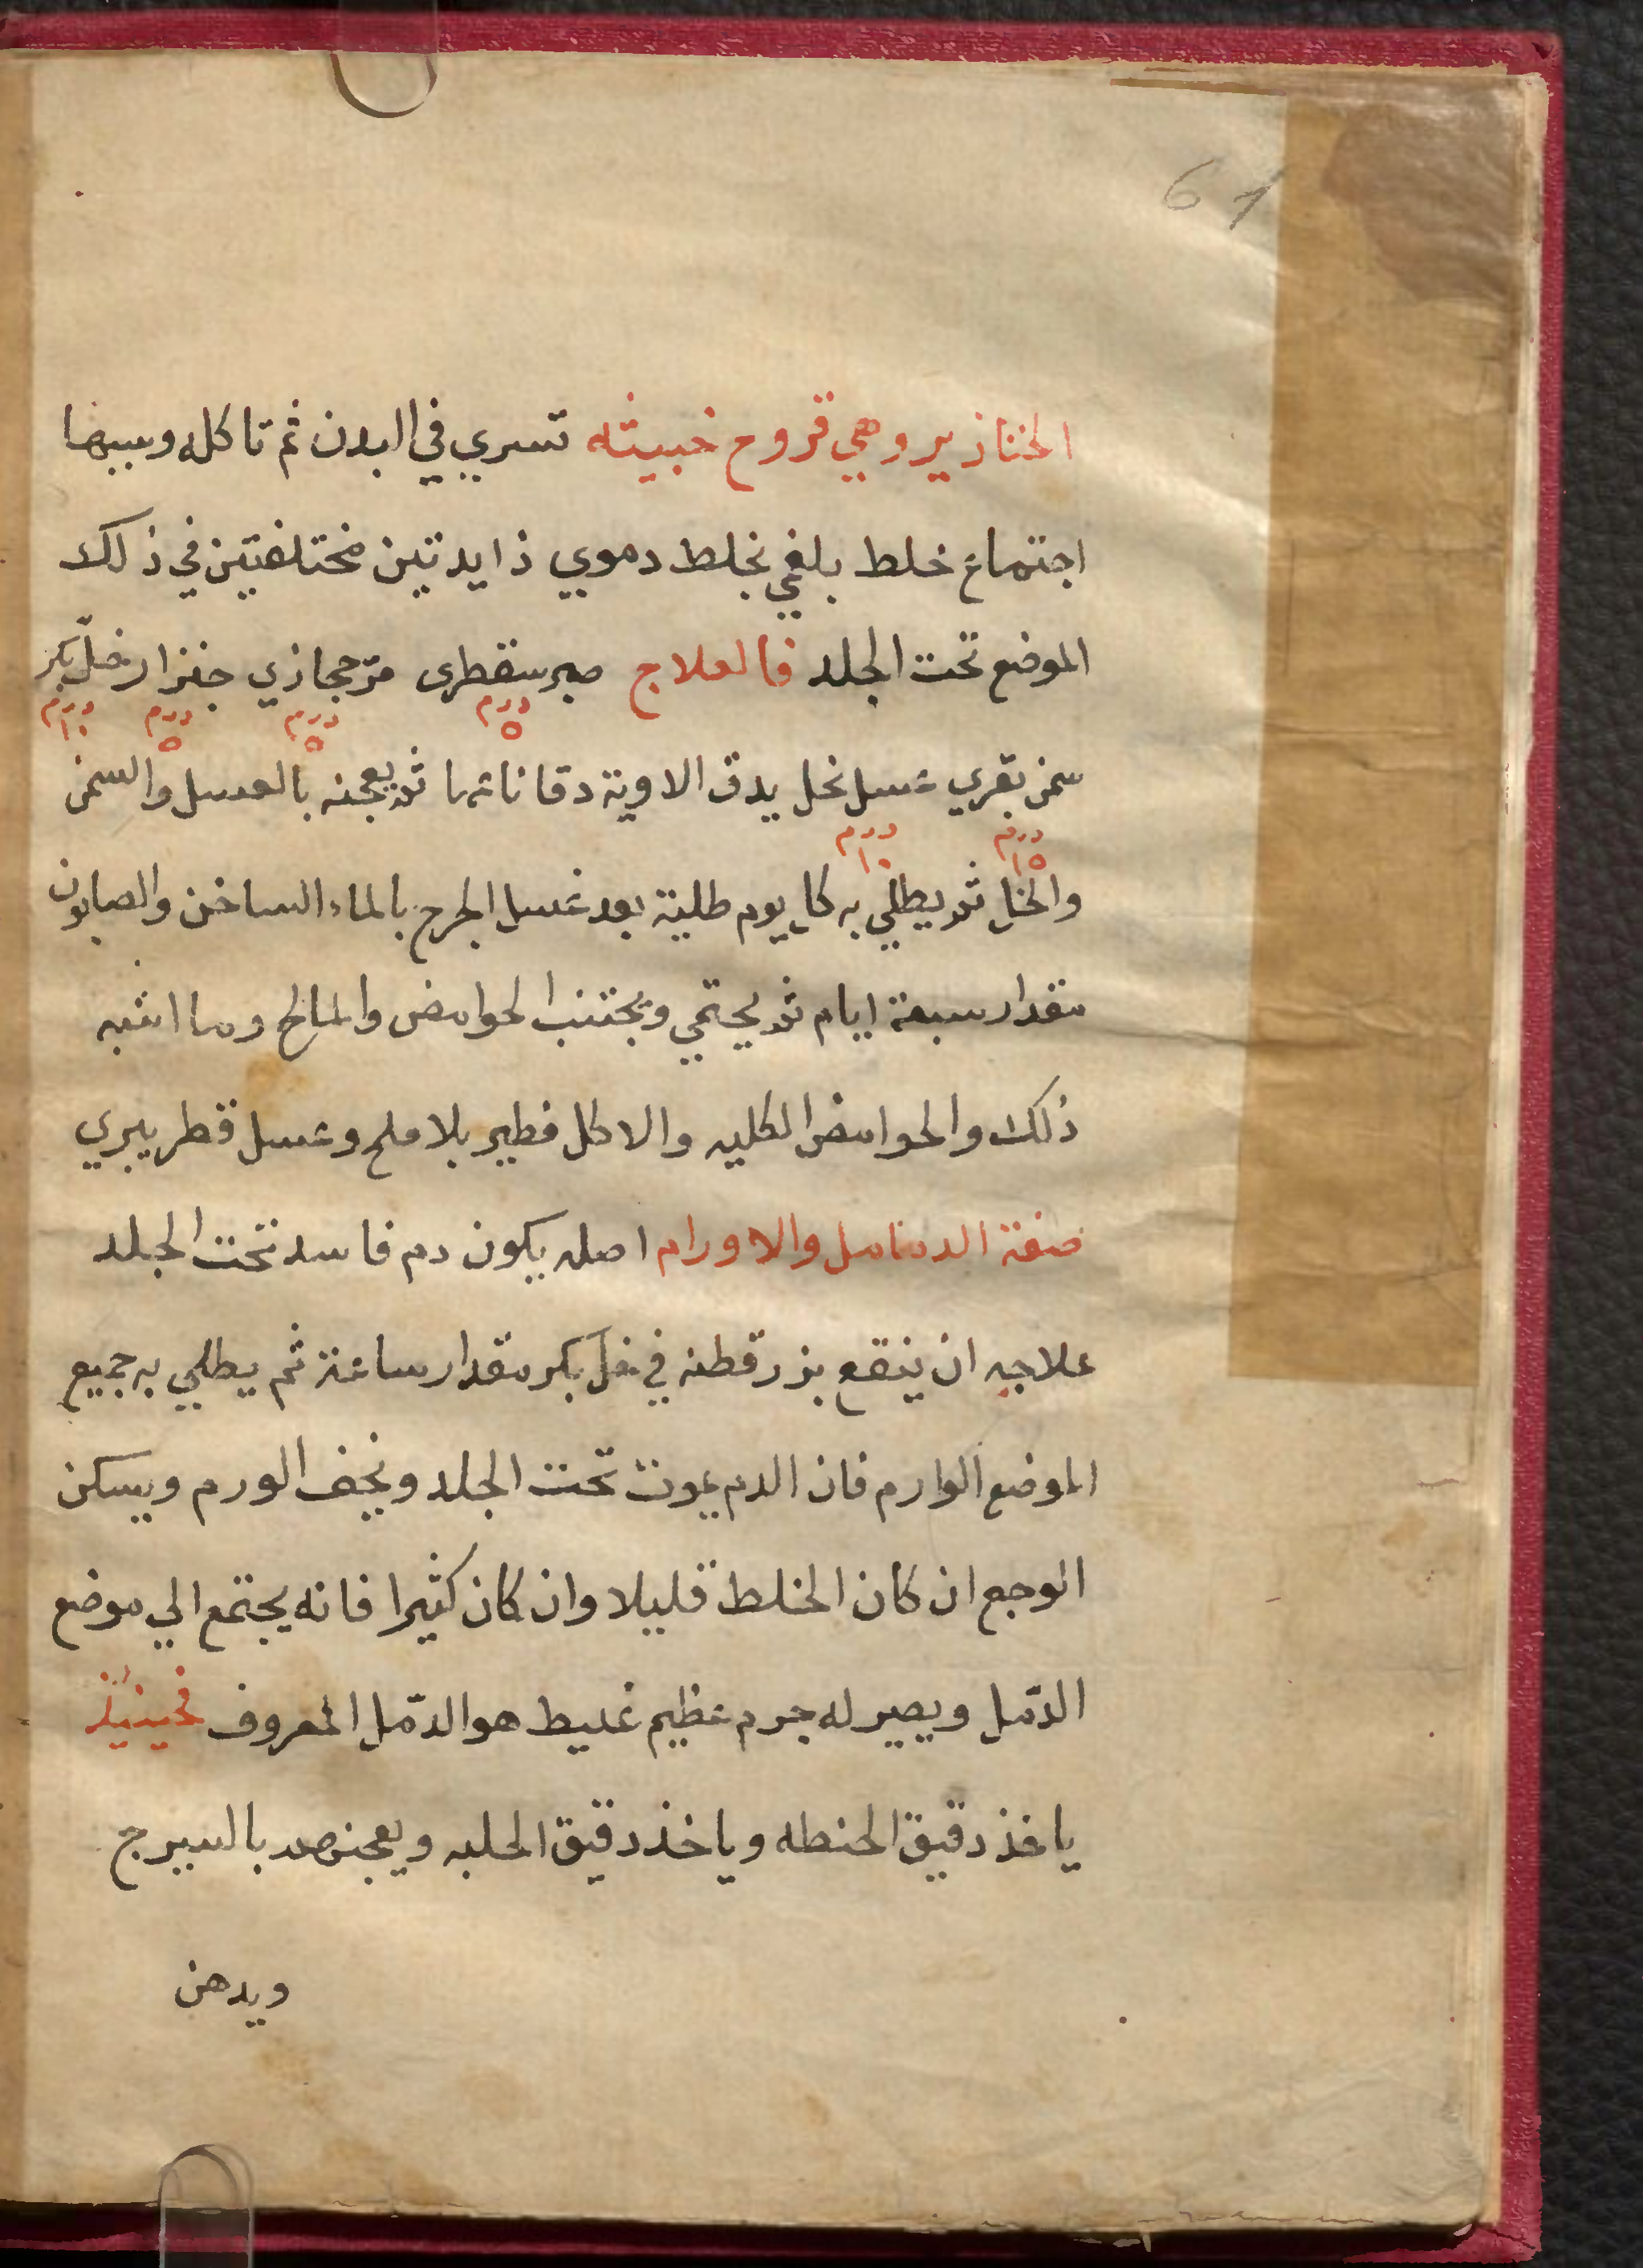 61
الخنازير وهي قروح خبيثه تسري في البدن ثم تاكله وسببها
اجتماع خلط بلغمي بخلط دموي ذايدتين مختلفتين في ذلك
الموضع تحت الجلد فالعلاج صبر سقطرى مرّ حجازي جنزار خلّ بكر
درم ٥ درم ٥ درم ٥ درم ١٠
سمن بقري عسل نحل يدق الاوية دقا ناعما ثم يعجنه بالعسل والسمن
درم ١٥ درم ١٠
والخل ثم يطلي به كل يوم طلية بعد غسل الجرح بالماء الساخن والصابون
مقدار سبعة ايام ثم يحتمي ويجتنب الحوامض والمالح وما اشبه
ذلك والحوامض الكليه والاكل فطير بلا ملح وعسل قطر يبري
صفة الدمامل والاورام اصله يكون دم فاسد تحت الجلد
علاجه ان ينقع بزر قطنه في خلّ بكر مقدار ساعة ثم يطلي به جميع
الموضع الوارم فان الدم يموت تحت الجلد ويجف الورم ويسكن
الوجع ان كان الخلط قليلا وان كان كثيرا فانه يجتمع الي موضع
الدّمل ويصير له جرم عظيم غليط هو الدّمل المعروف فحينئذ
ياخذ دقيق الحنطه وياخذ دقيق الحلبه ويعجنهم بالسيرج
ويدهن